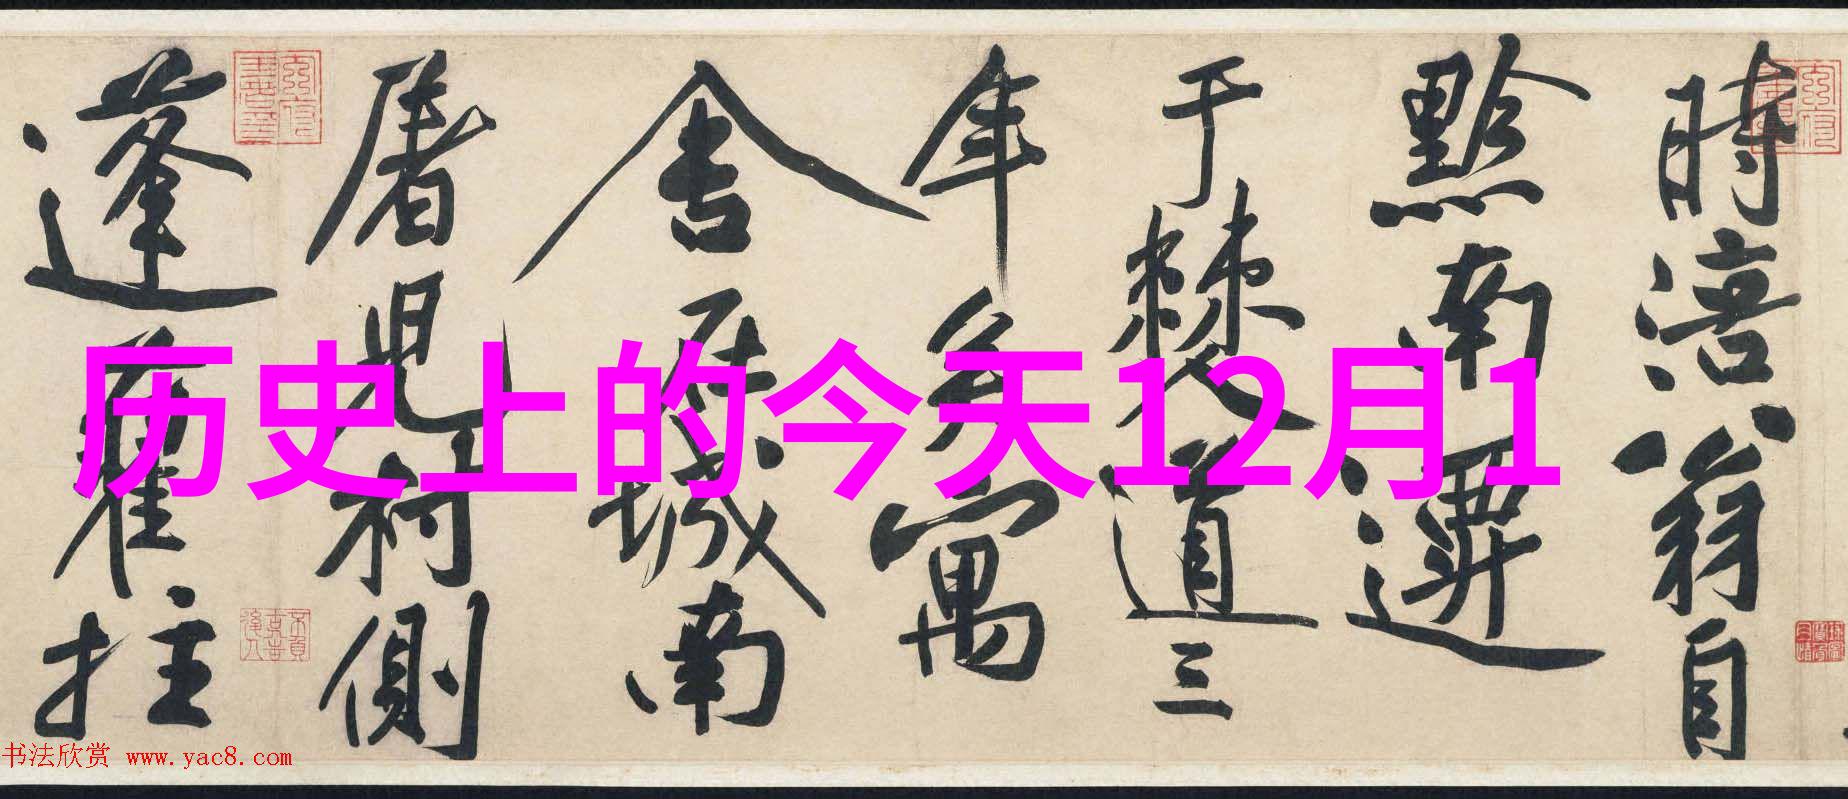 時涪翁自
黔南遷
于僰道三
年矣寓
舍居城南
屠兒村側
蓬藋拄
历史上的今天12月1
书法欣赏 www.yac8.com